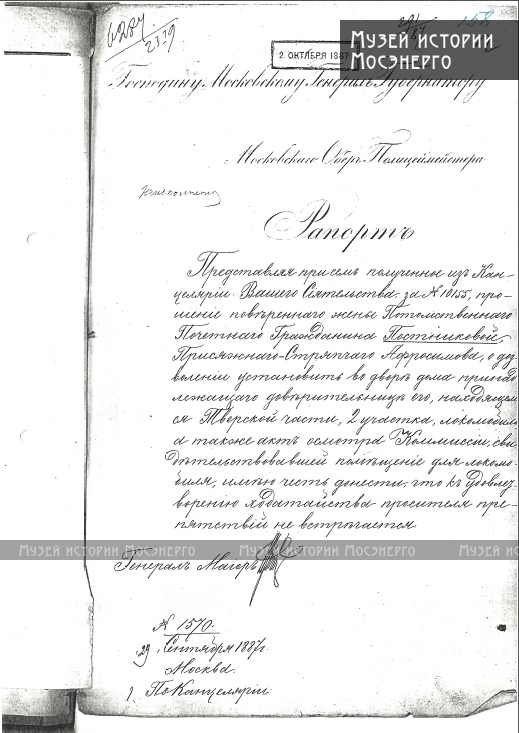 6284
2339
158
МУЗЕЙ ИСТОРИИ
МОСЭНЕРГО
2. ОКТЯБРЯ 1887
Господину Московскому Генералъ Губернатору
Московскаго Оберъ-Полицеймейстера
Рапортъ
Представляя при семъ полученное изъ Кан-
целяріи Вашего Сіятельства за № 10155, про-
шеніе повѣреннаго жены Потомственнаго
Почетнаго Гражданина Постниковой,
Присяжнаго-Стряпчаго Афросимова, о доз-
воленіи установить во дворѣ дома принад
лежащаго довѣрительницѣ его, находящем
ся Тверской части, 2 участка, локомобиль
а также актъ осмотра Коммисіи, сви
дѣтельствовавшей помѣщеніе для локомо-
биля, имѣю честь донести, что къ удовлет-
воренію ходатайства просителя пре-
пятствій не встрѣчается
МУЗЕЙ ИСТОРИИ МОСЭНЕРГО МУЗЕЙ ИСТОРИИ МОСЭНЕРГО МУЗЕЙ ИСТОРИИ МОСЭНЕРГО
Генералъ Маіоръ
№ 1570.
29 Сентября 1887 г.
Москва.
По Канцеляріи